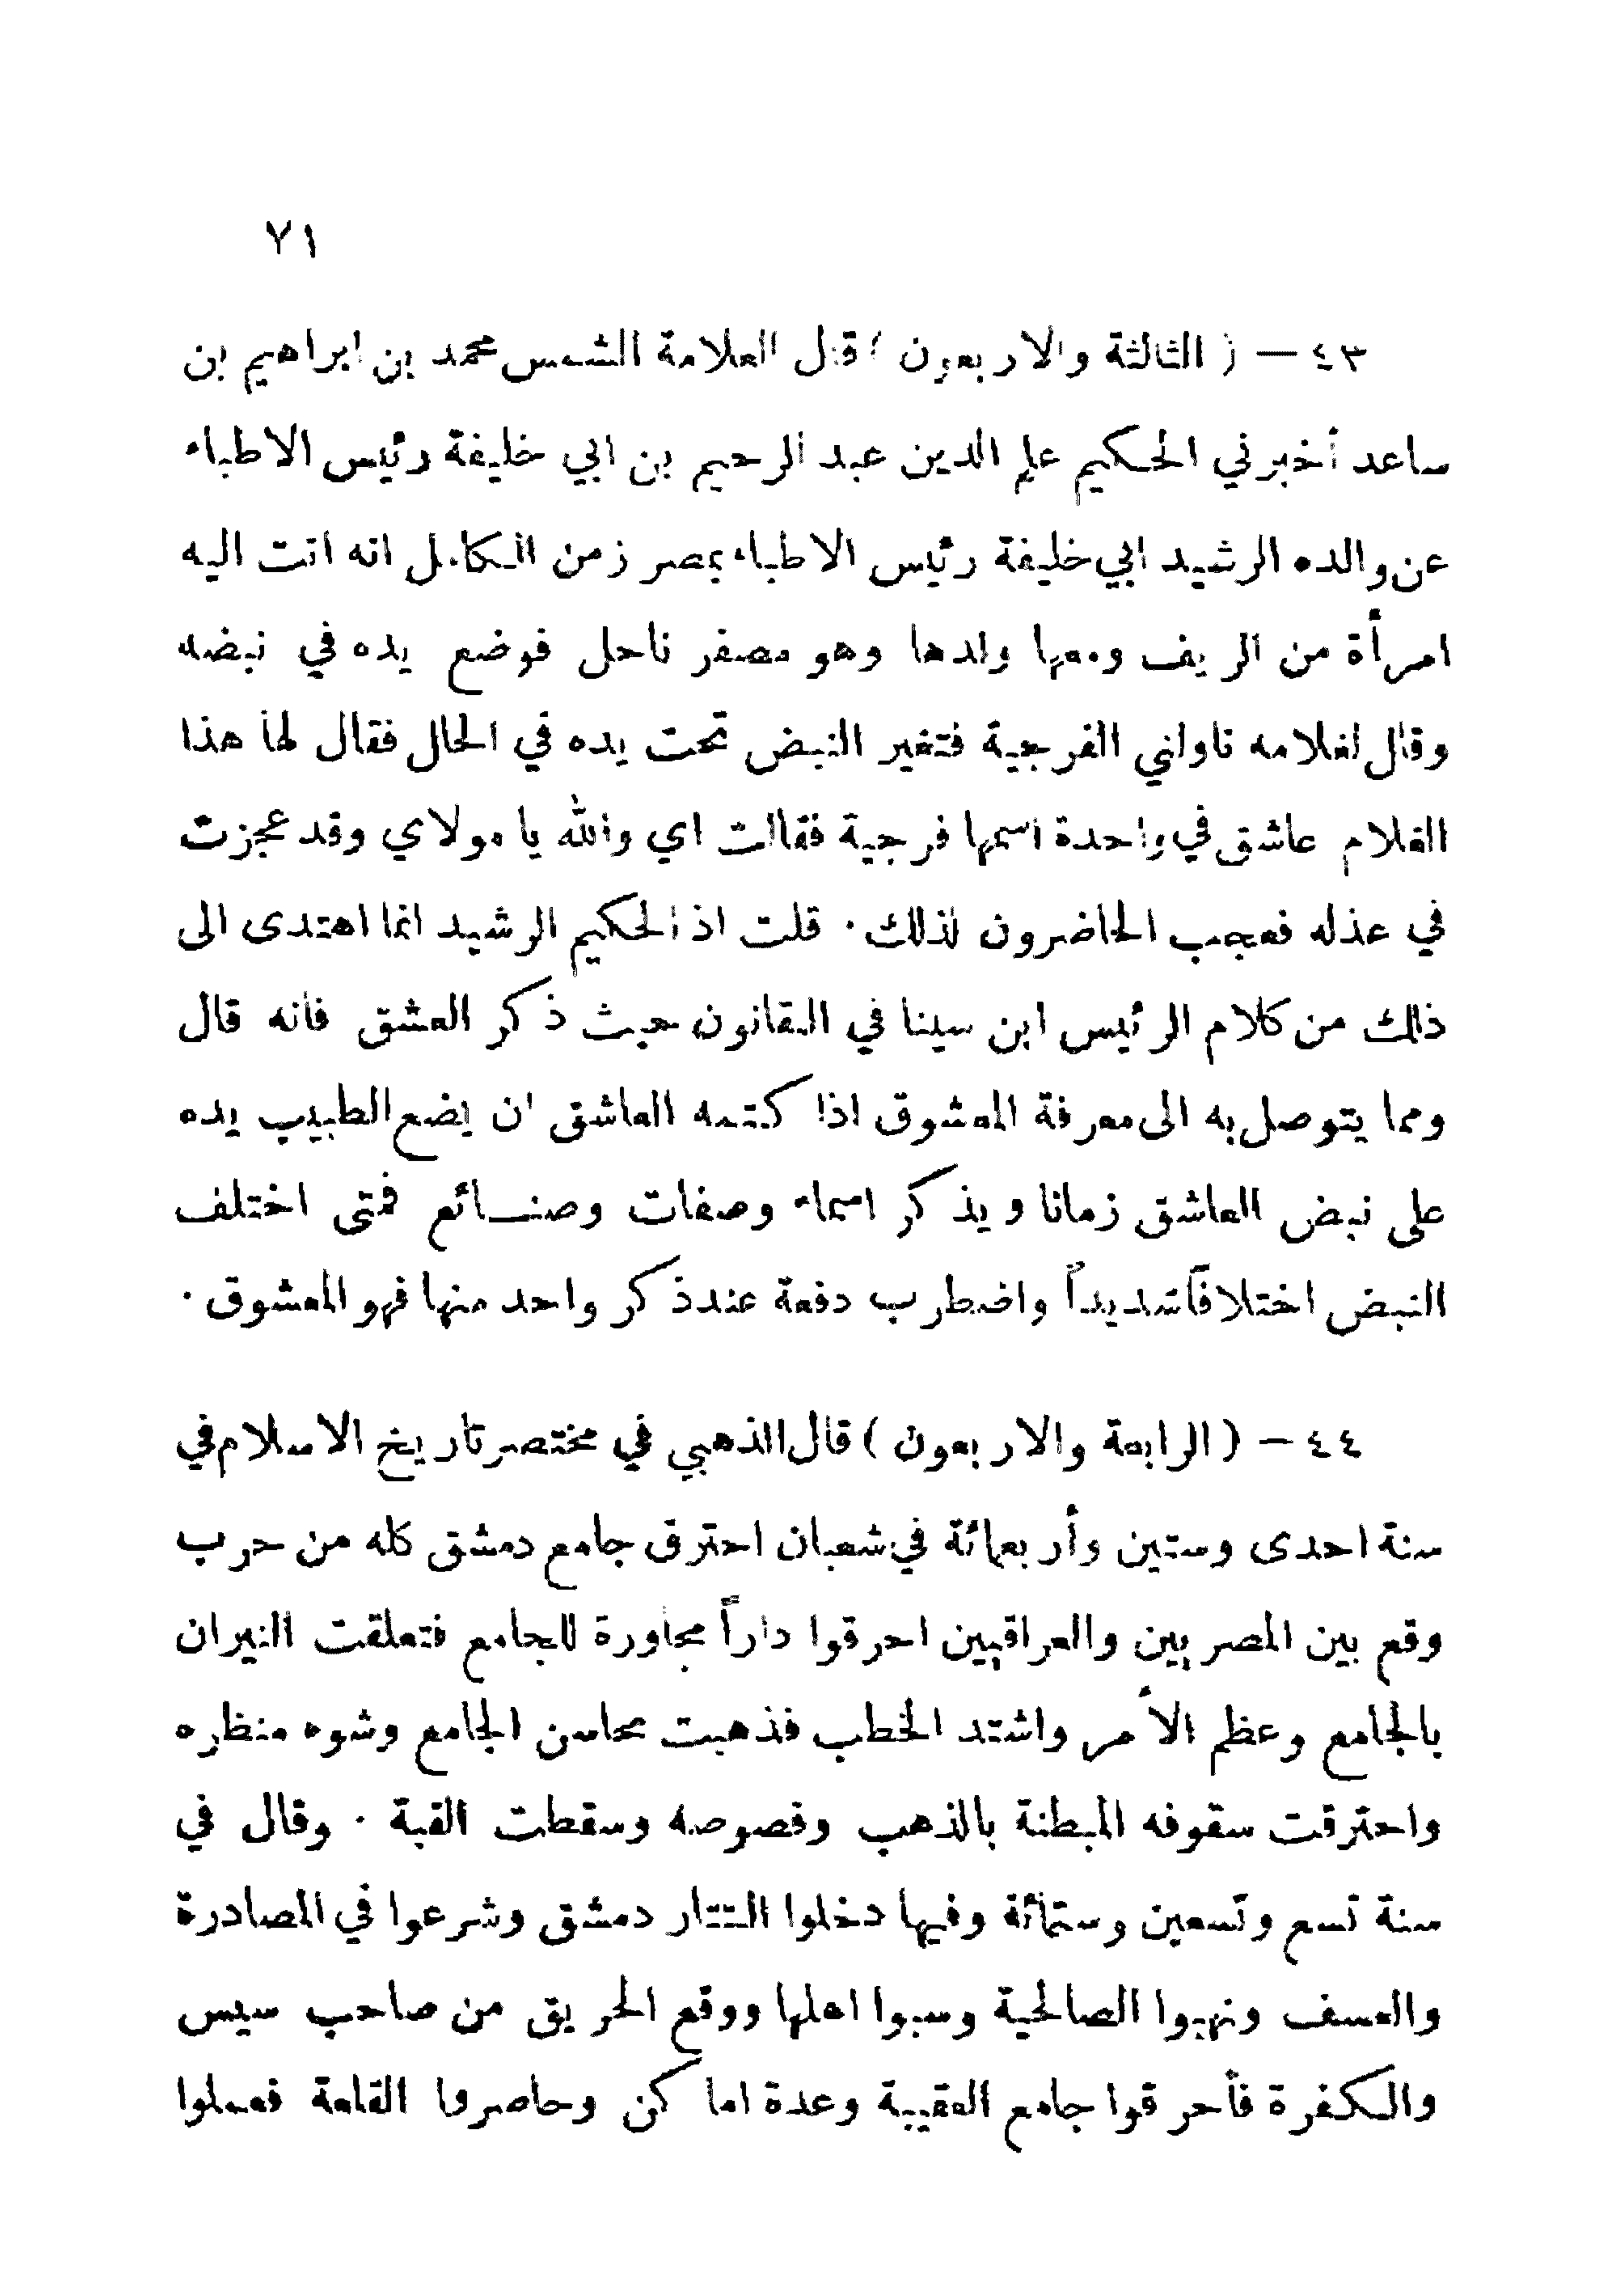 ٧١
٤٣ — ( الثالثة والاربعون ) قال العلامة الشمس محمد بن ابراهيم بن
ساعد أخبرني الحكيم علم الدين عبد الرحيم بن ابي خليفة رئيس الاطباء
عن والده الرشيد ابي خليفة رئيس الاطباء بمصر زمن الكامل انه اتت اليه
امرأة من الريف ومعها ولدها وهو مصفر ناحل فوضع يده في نبضه
وقال لغلامه ناولني الفرجية فتغير النبض تحت يده في الحال فقال لها هذا
الغلام عاشق في واحدة اسمها فرجية فقالت اي والله يا مولاي وقد عجزت
في عذله فعجب الحاضرون لذلك . قلت اذ الحكيم الرشيد انما اهتدى الى
ذلك من كلام الرئيس ابن سينا في القانون حيث ذكر العشق فانه قال
ومما يتوصل به الى معرفة المعشوق اذا كتمه العاشق ان يضع الطبيب يده
على نبض العاشق زمانا ويذكر اسماء وصفات وصنائع فمتى اختلف
النبض اختلافاً شديداً واضطرب دفعة عند ذكر واحد منها فهو المعشوق .
٤٤ — ( الرابعة والاربعون ) قال الذهبي في مختصر تاريخ الاسلام في
سنة احدى وستين وأربعمائة في شعبان احترق جامع دمشق كله من حرب
وقع بين المصريين والعراقيين احرقوا داراً مجاورة للجامع فتعلقت النيران
بالجامع وعظم الأمر واشتد الخطب فذهبت محاسن الجامع وشوه منظره
واحترقت سقوفه المبطنة بالذهب وفصوصه وسقطت القبة . وقال في
سنة تسع وتسعين وستمائة وفيها دخلوا التتار دمشق وشرعوا في المصادرة
والعسف ونهبوا الصالحية وسبوا اهلها ووقع الحريق من صاحب سيس
والكفرة فأحرقوا جامع العقيبة وعدة اماكن وحاصروا القلعة فعملوا